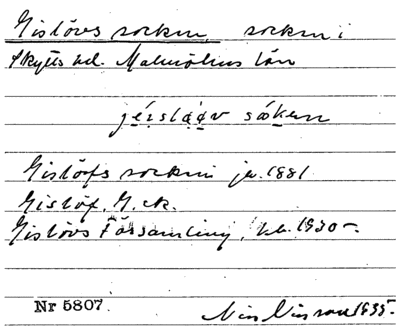 Gislövs socken, socken i
Skytts hd. Malmöhus län
jɇ́ɪslǡǡv sɷ́ken
Gislöfs socken je. 1881
Gislöf, G.ek.
Gislövs Församling, kb. 1930-
Nr 5807. Nils Nilsson 1935.